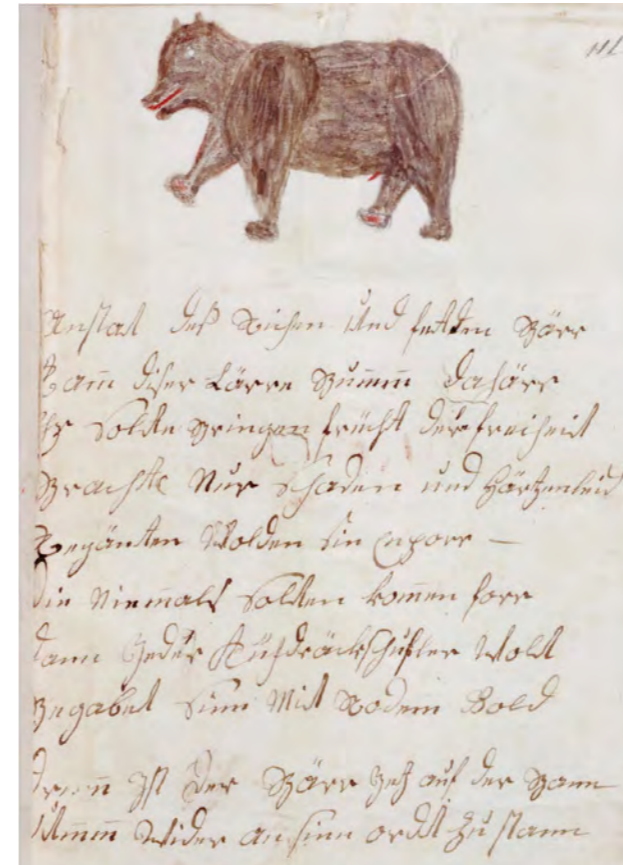 Anstat deß Reichen Und fetten Bärr
Kam̅ diser Lärre Bum̅m dahärr
Er Solte Bringen frücht der freiheit
Brachte Nur schaden und Härtzenleid
Regänten Wolden sin Enporr –
Die Niemals Solten kom̅en forr
Dann Jeder Kühdräckschufler Wolt
Begabet Sinn Mit Rodem Gold
Ist Der Bärr Jetz auf der Bann
Wider an sinn ordt zu stann